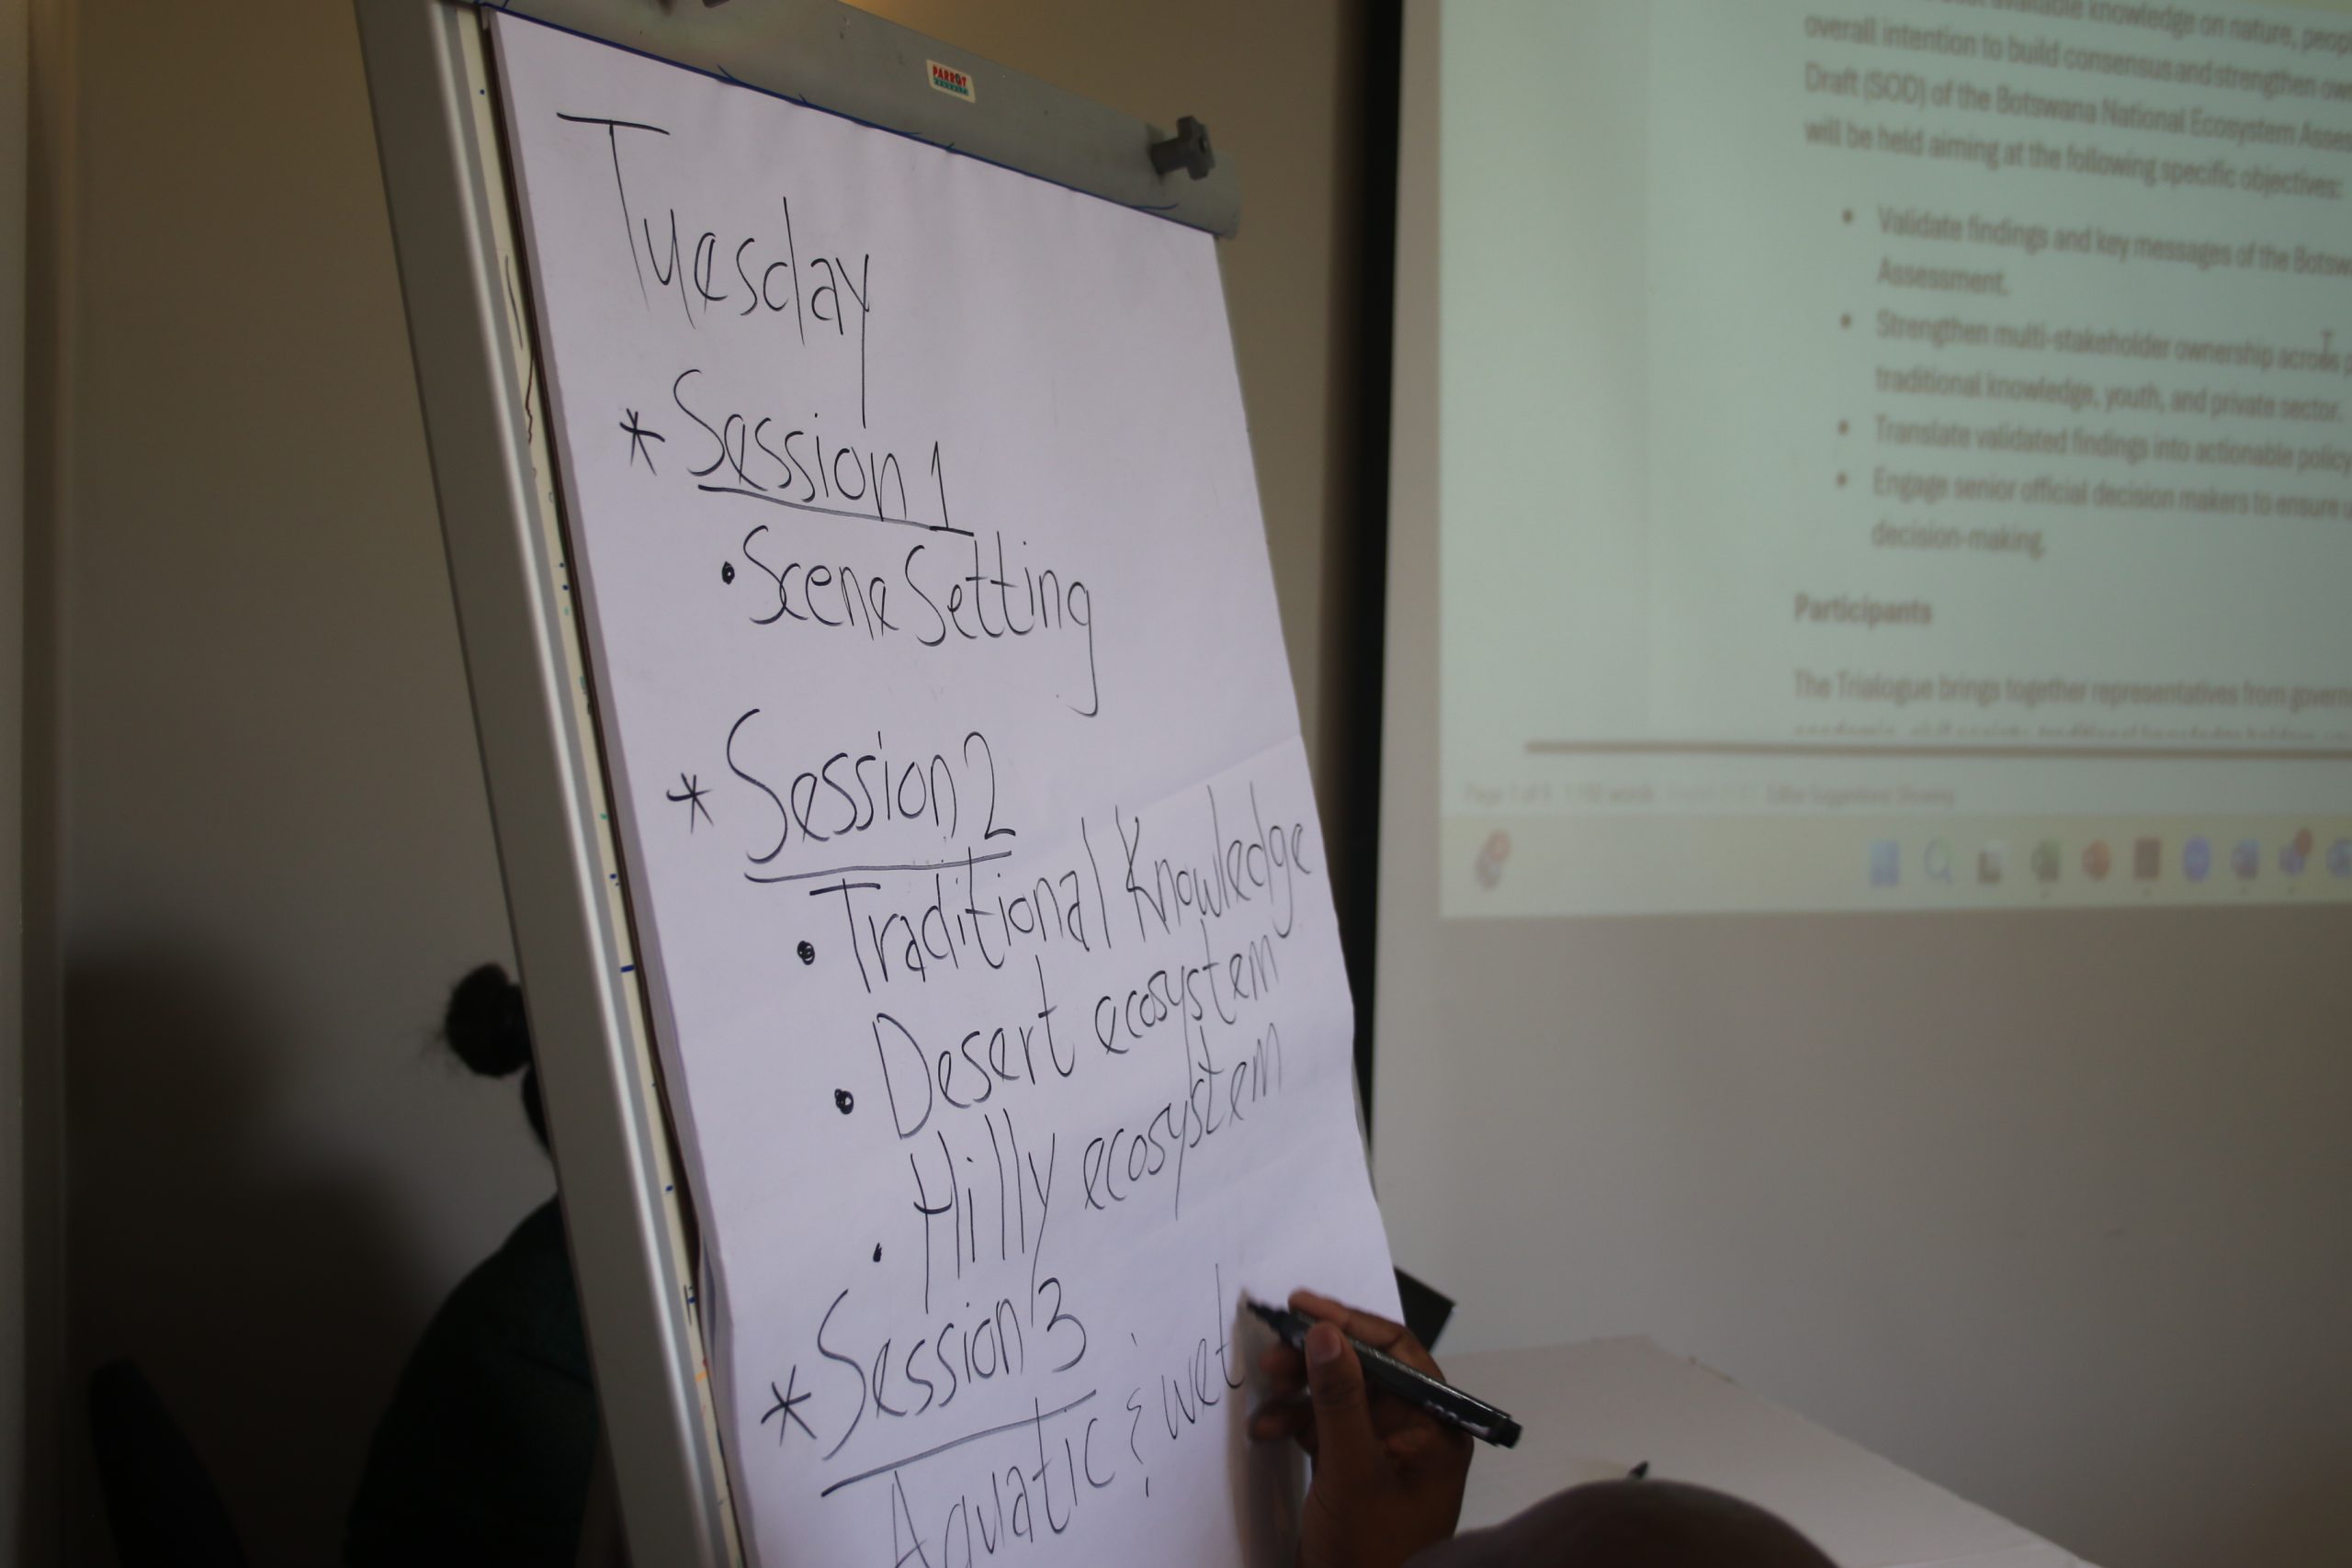 PARROT
Tuesday
* Session 1
• Scene Setting
* Session 2
• Traditional Knowledge
• Desert ecosystem
• Hilly ecosystem
* Session 3
Aquatic & wet
available knowledge on nature,
overall intention to build consensus and strengthen
Draft (SOD) of the Botswana National Ecosystem
will be held aiming at the following specific objectives:
• Validate findings and key messages of the
Assessment.
• Strengthen multi-stakeholder ownership across
traditional knowledge, youth, and private sector.
• Translate validated findings into actionable policy
• Engage senior official decision makers to ensure
decision-making.
Participants
The Trialogue brings together representatives from